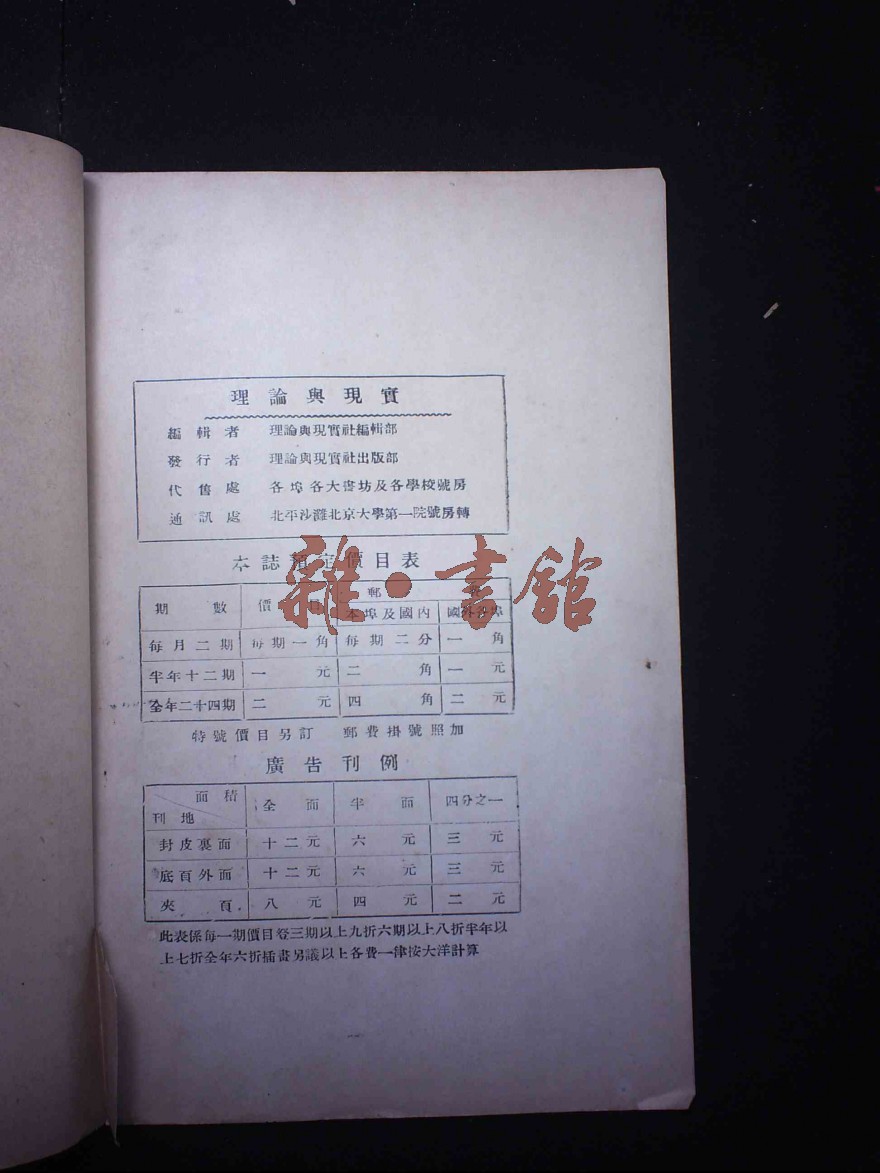 理論與現實
編輯者 理論與現實社編輯部
發行者 理論與現實社出版部
代售處 各埠各大書坊及各學校號房
通訊處 北平沙灘北京大學第一院號房轉
本誌預定價目表
期數 價目 郵
本埠及國內 國外各埠
每月二期 每期一角 每期二分 一角
半年十二期 一元 二角 一元
全年二十四期 二元 四角 二元
特號價目另訂 郵費掛號照加
廣告刊例
面積 刊地 全面 半面 四分之一
封皮裏面 十二元 六元 三元
底頁外面 十二元 六元 三元
夾頁 八元 四元 二元
此表係每一期價目登三期以上九折六期以上八折半年以
上七折全年六折插畫另議以上各費一律按大洋計算
雜·書館